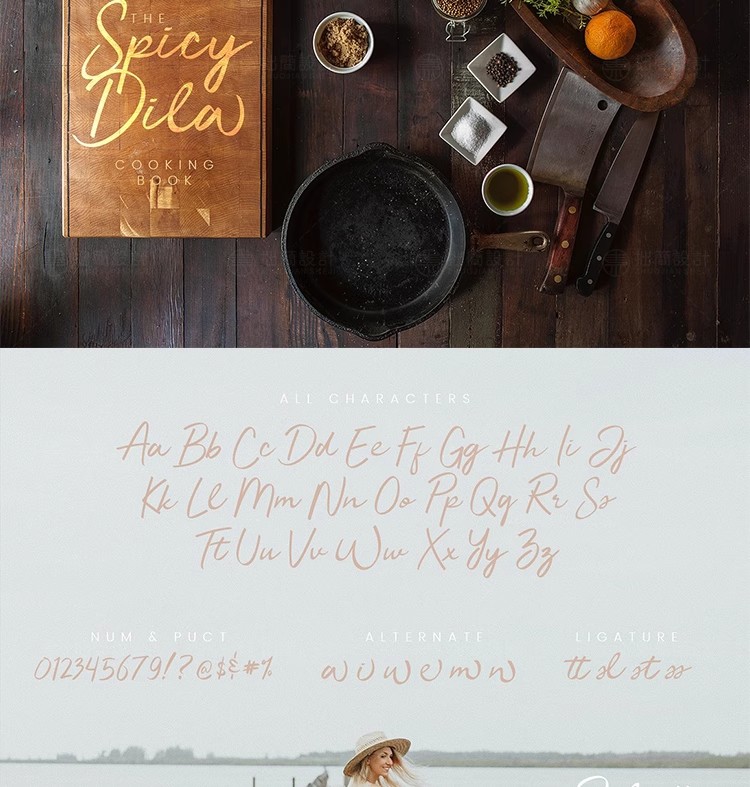 THE
Spicy
Dila
COOKING
BOOK
ALL CHARACTERS
Aa Bb Cc Dd Ee Ff Gg Hh Ii Jj
Kk Ll Mm Nn Oo Pp Qq Rr Ss
Tt Uu Vv Ww Xx Yy Zz
NUM & PUCT
ALTERNATE
LIGATURE
012345679!?@$&#%
a i u e m n
tt sl st ss